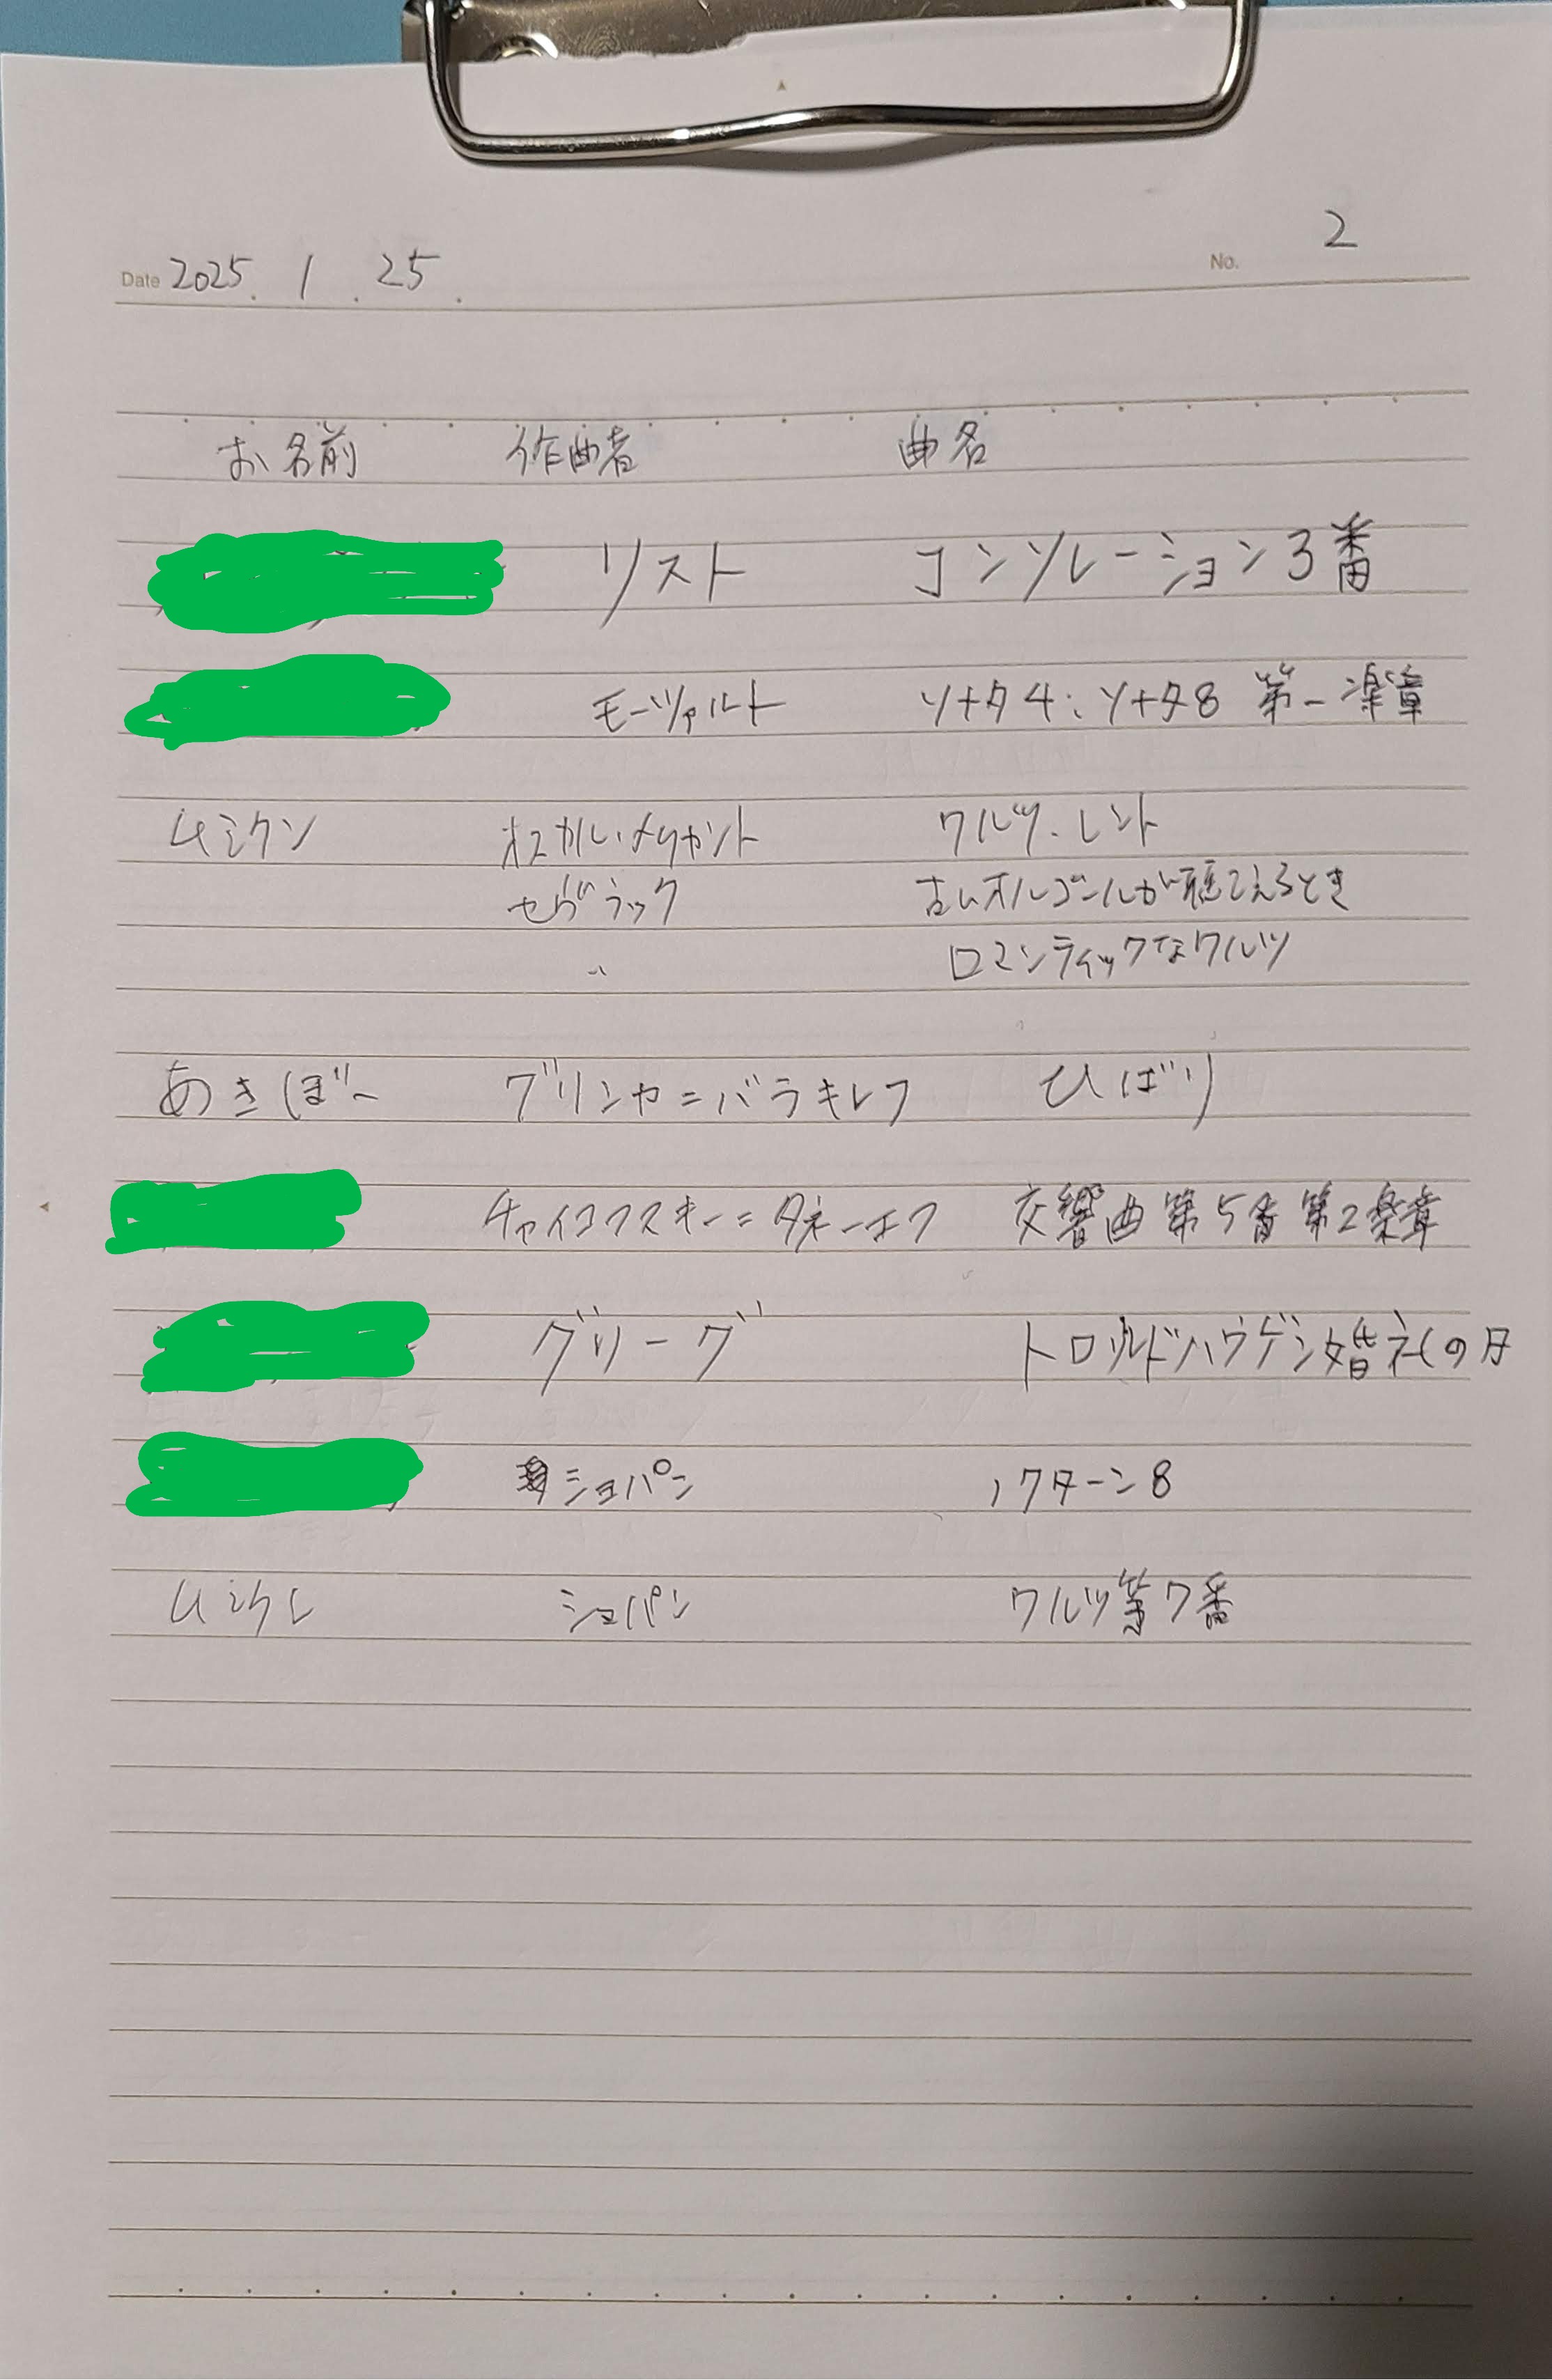 Date 2025. 1. 25. No. 2
お名前 作曲者 曲名
リスト コンソレーション3番
モーツァルト ソナタ4、ソナタ8 第一楽章
ムシクン オスカル・メリカント ワルツ・レント
セヴラック 古いオルゴールが聴こえるとき
〃 ロマンティックなワルツ
あきぼー グリンカ=バラキレフ ひばり
チャイコフスキー=タネーエフ 交響曲第5番第2楽章
グリーグ トロルドハウゲン婚礼の日
ショパン ノクターン8
ムシクン ショパン ワルツ第7番